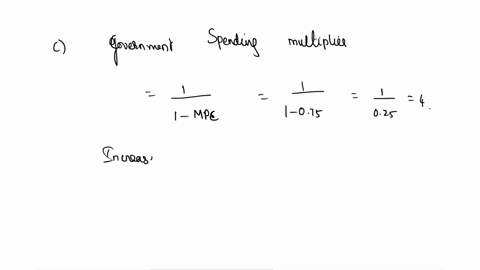 c) Government Spending multiplier
= 1/(1 - MPC) = 1/(1-0.75) = 1/0.25 = 4.
Increas